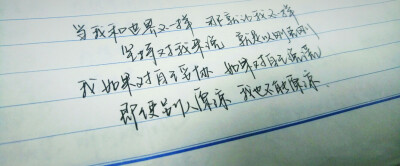 当我和世界不一样 那就让我不一样
坚持对我来说 就是以刚克刚
我如果对自己妥协 如果对自己说谎
即使别人原谅 我也不能原谅